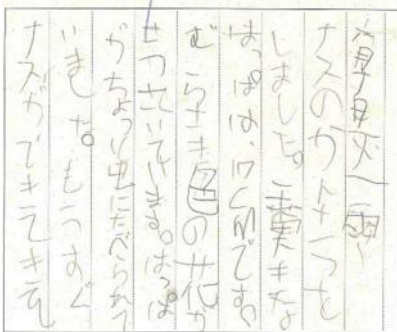 ナスのかんさつを
しました。きな
はっぱは、17cmです。
むらさき色の花が
つさいています。はっぱ
がちょっと虫にたべられて
いました。もうすぐ
ナスができてきそ